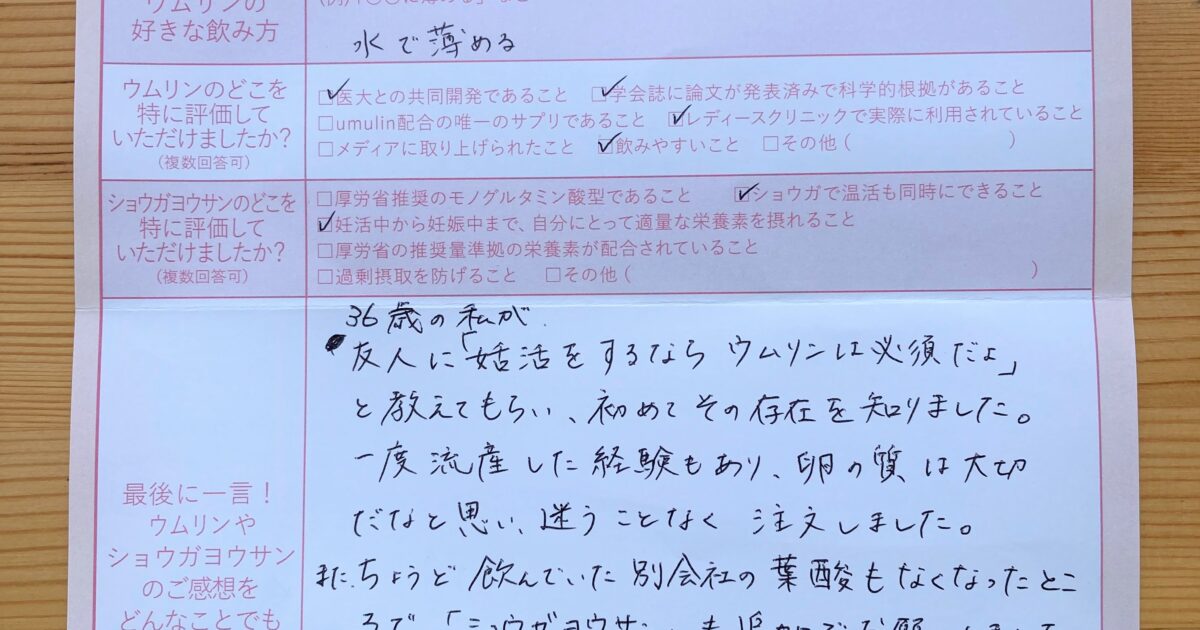 ウムリンの
好きな飲み方
水で薄める
ウムリンのどこを
特に評価して
いただけましたか？
（複数回答可）
☑医大との共同開発であること ☑学会誌に論文が発表済みで科学的根拠があること
□umulin配合の唯一のサプリであること ☑レディースクリニックで実際に利用されていること
□メディアに取り上げられたこと ☑飲みやすいこと □その他（ ）
ショウガヨウサンのどこを
特に評価して
いただけましたか？
（複数回答可）
□厚労省推奨のモノグルタミン酸型であること ☑ショウガで温活も同時にできること
☑妊活中から妊娠中まで、自分にとって適量な栄養素を摂れること
□厚労省の推奨量準拠の栄養素が配合されていること
□過剰摂取を防げること □その他（ ）
最後に一言！
ウムリンや
ショウガヨウサン
のご感想を
どんなことでも
36歳の私が
友人に「妊活をするなら ウムリンは必須だよ」
と教えてもらい、初めてその存在を知りました。
一度流産した経験もあり、卵の質は大切
だなと思い、迷うことなく 注文しました。
また、ちょうど飲んでいた別会社の葉酸もなくなったとこ
ろで「ショウガヨウサン」も